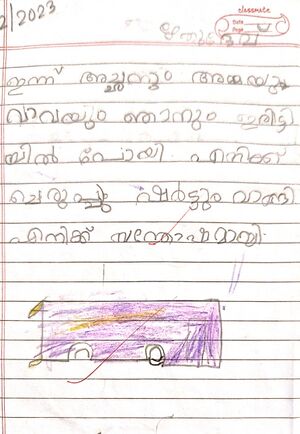 2/2023
classmate
Date
Page
ഋതുദേവ
ഇന്ന് അച്ഛനും അമ്മയും
വാവയും ഞാനും ഇരിട്ടി
യിൽ പോയി എനിക്ക്
ചെരുപ്പു ഷർട്ടും വാങ്ങി
എനിക്ക് സന്തോഷമായി